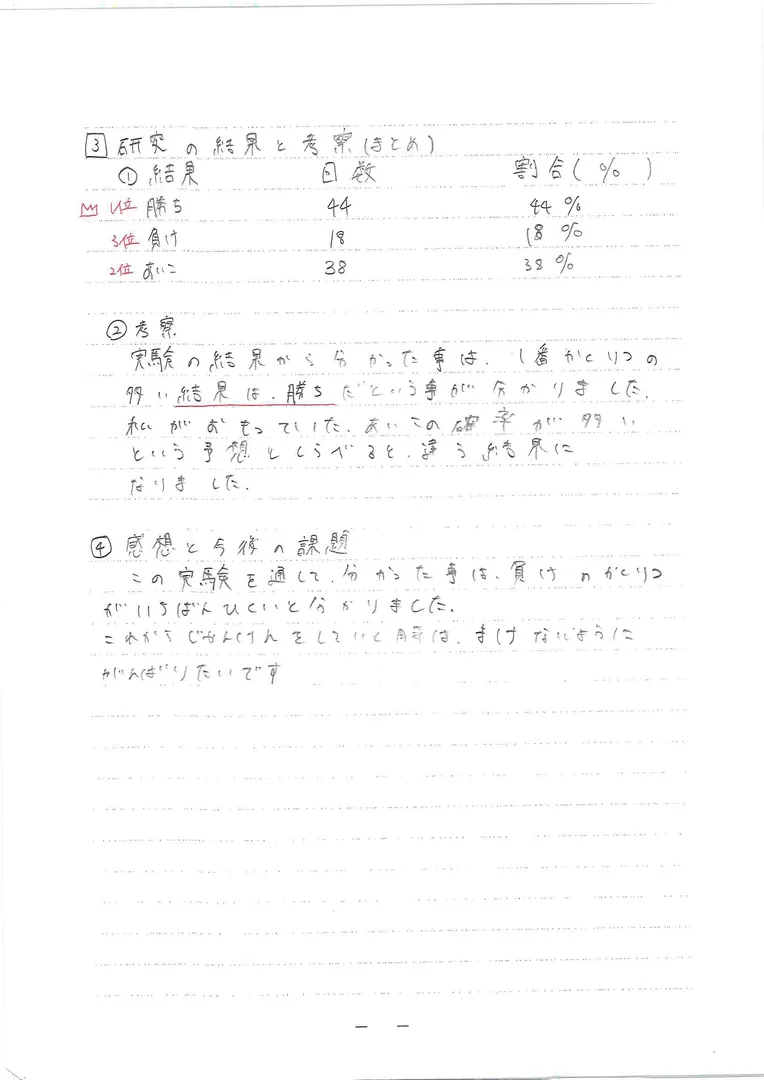 3 研究の結果と考察(まとめ)
①結果 回数 割合(%)
1位 勝ち 44 44%
3位 負け 18 18%
2位 あいこ 38 38%
②考察
実験の結果から分かった事は、1番かくりつの
多い結果は、勝ちだという事が分かりました。
私がおもっていた、あいこの確率が多い
という予想としらべると、違う結果に
なりました。
④感想と今後の課題
この実験を通して、分かった事は、負けのかくりつ
がいちばんひくいと分かりました。
これからじゃんけんをしていく際は、まけないように
がんばりたいです